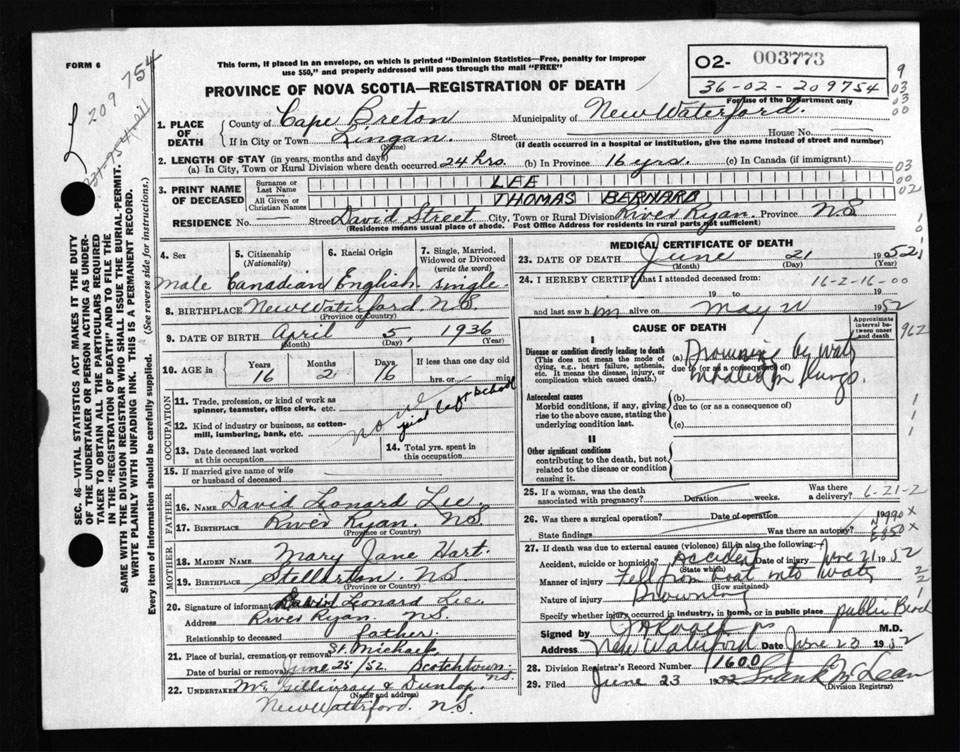 FORM 6
This form, if placed in an envelope, on which is printed "Dominion Statistics—Free, penalty for improper
use $50," and properly addressed will pass through the mail "FREE"
PROVINCE OF NOVA SCOTIA—REGISTRATION OF DEATH
02- 003773
36-02-209754
For use of the Department only
209 754
9
03
03
00
1. PLACE OF DEATH
County of Cape Breton Municipality of New Waterford.
If in City or Town Lingan. Street House No.
(Name) (If death occurred in a hospital or institution, give the name instead of street and number)
2. LENGTH OF STAY (in years, months and days)
(a) In City, Town or Rural Division where death occurred 24 hrs. (b) In Province 16 yrs. (c) In Canada (if immigrant)
03
00
02
3. PRINT NAME OF DECEASED
Surname or Last Name LEE
All Given or Christian Names THOMAS BERNARD
RESIDENCE No. — Street David Street City, Town or Rural Division River Ryan. Province NS
(Residence means usual place of abode. Post Office Address for residents in rural parts not sufficient)
4. Sex Male
5. Citizenship (Nationality) Canadian
6. Racial Origin English
7. Single, Married, Widowed or Divorced (write the word) single.
8. BIRTHPLACE New Waterford. N.S.
(Province or Country)
9. DATE OF BIRTH April 5, 1936
(Month) (Day) (Year)
10. AGE in Years 16 Months 2 Days 16 If less than one day old hrs. or min.
OCCUPATION
11. Trade, profession, or kind of work as spinner, teamster, office clerk, etc.
12. Kind of industry or business, as cotton-mill, lumbering, bank, etc. no just left School
13. Date deceased last worked at this occupation
14. Total yrs. spent in this occupation
15. If married give name of wife or husband of deceased
FATHER
16. NAME David Leonard Lee.
17. BIRTHPLACE River Ryan. N.S.
(Province or Country)
MOTHER
18. MAIDEN NAME Mary Jane Hart.
19. BIRTHPLACE Stellarton. NS
(Province or Country)
20. Signature of informant David Leonard Lee.
Address River Ryan. N.S.
Relationship to deceased father.
21. Place of burial, cremation or removal St. Michaels
Date of burial or removal June 25/52. Scotchtown. N.S.
22. UNDERTAKER McGillivray & Dunlop.
(Name and address)
New Waterford. N.S.
MEDICAL CERTIFICATE OF DEATH
23. DATE OF DEATH June 21 1952
(Month) (Day) (Year)
24. I HEREBY CERTIFY that I attended deceased from 16-2-16-00
19 to 19
and last saw him alive on May 1952
CAUSE OF DEATH
Approximate interval between onset and death
962
I
Disease or condition directly leading to death
(This does not mean the mode of dying, e.g., heart failure, asthenia, etc. It means the disease, injury, or complication which caused death.)
(a) Drowning by water
due to (or as a consequence of)
inhaled in lungs.
Antecedent causes
Morbid conditions, if any, giving rise to the above cause, stating the underlying condition last.
(b)
due to (or as a consequence of)
(c)
II
Other significant conditions
contributing to the death, but not related to the disease or condition causing it.
25. If a woman, was the death associated with pregnancy? Duration weeks. Was there a delivery? 6-21-2
26. Was there a surgical operation? Date of operation N990X
State findings Was there an autopsy? E850X
27. If death was due to external causes (violence) fill in also the following:
Accident, suicide or homicide? Accident Date of injury June 21. 52
(State which)
Manner of injury Fell from boat into water
(How sustained)
Nature of injury Drowning
Specify whether injury occurred in industry, in home, or in public place public Beach
Signed by M.D.
Address New Waterford Date June 23 1952
28. Division Registrar's Record Number 1600
29. Filed June 23 1952 Frank McLean
(Division Registrar)
SEC. 46—VITAL STATISTICS ACT MAKES IT THE DUTY
OF THE UNDERTAKER OR PERSON ACTING AS UNDER-
TAKER TO OBTAIN ALL THE PARTICULARS REQUIRED
IN THE "REGISTRATION OF DEATH" AND TO FILE THE
SAME WITH THE DIVISION REGISTRAR WHO SHALL ISSUE THE BURIAL-PERMIT.
WRITE PLAINLY WITH UNFADING INK. THIS IS A PERMANENT RECORD.
Every item of information should be carefully supplied. (See reverse side for instructions.)